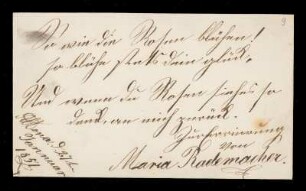 So wie die Rosen blühen!
so blühe stets dein glück.
Und wenn du Rosen siehst so
denk an mich zurück.
Zur Erinnerung
von
Maria Rademacher.
Altona d. 31t
Januar
185
9